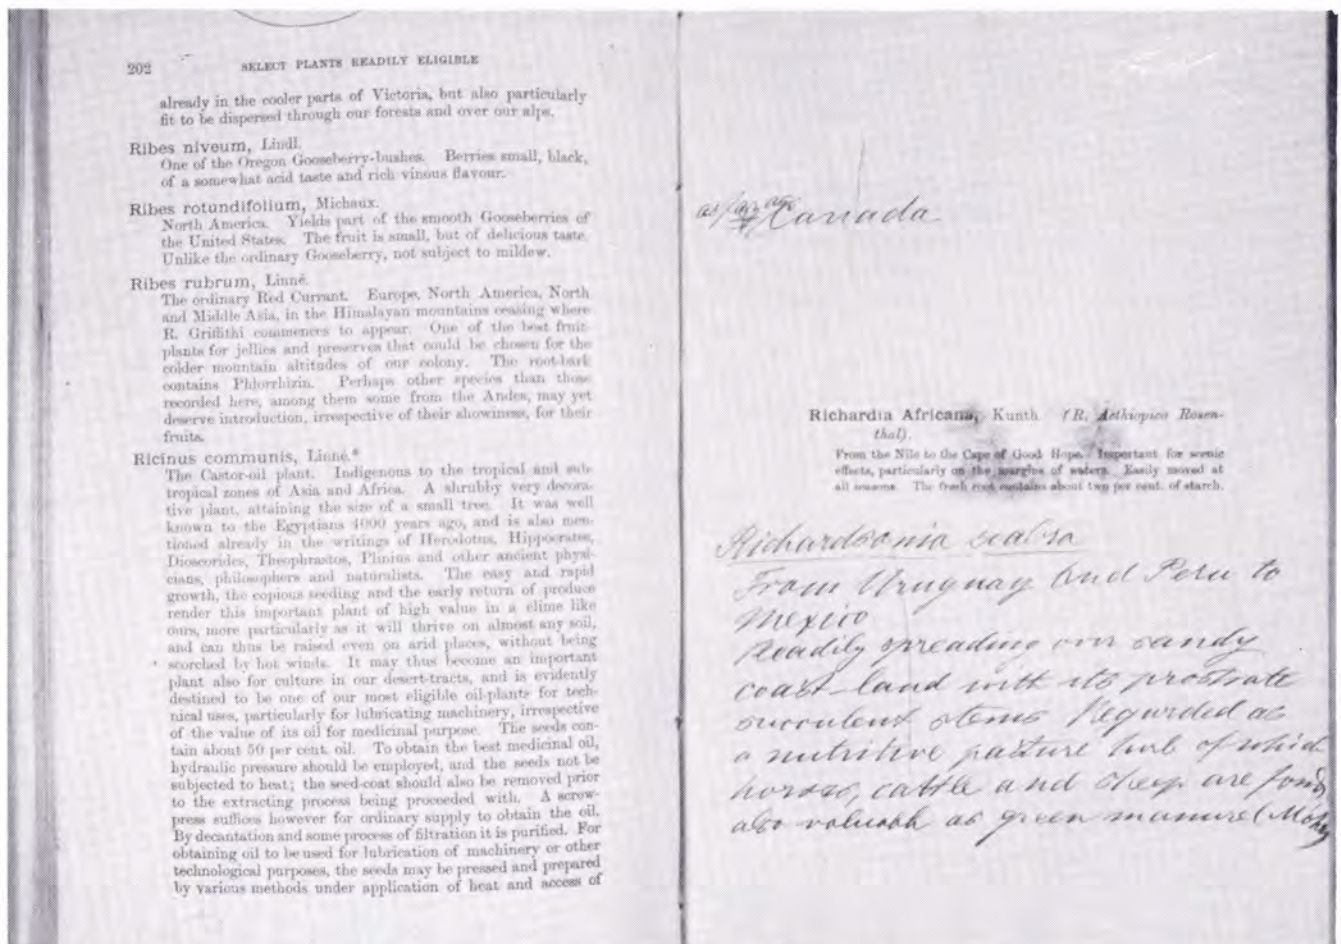 202 SELECT PLANTS READILY ELIGIBLE
already in the cooler parts of Victoria, but also particularly
fit to be dispersed through our forests and over our alps.
Ribes niveum, Lindl.
One of the Oregon Gooseberry-bushes. Berries small, black,
of a somewhat acid taste and rich vinous flavour.
Ribes rotundifolium, Michaux.
North America. Yields part of the smooth Gooseberries of
the United States. The fruit is small, but of delicious taste.
Unlike the ordinary Gooseberry, not subject to mildew.
Ribes rubrum, Linné.
The ordinary Red Currant. Europe, North America, North
and Middle Asia, in the Himalayan mountains ceasing where
R. Griffithi commences to appear. One of the best fruit-
plants for jellies and preserves that could be chosen for the
colder mountain altitudes of our colony. The root-bark
contains Phlorrhizin. Perhaps other species than those
recorded here, among them some from the Andes, may yet
deserve introduction, irrespective of their showiness, for their
fruits.
Ricinus communis, Linné.*
The Castor-oil plant. Indigenous to the tropical and sub-
tropical zones of Asia and Africa. A shrubby very decora-
tive plant, attaining the size of a small tree. It was well
known to the Egyptians 4000 years ago, and is also men-
tioned already in the writings of Herodotus, Hippocrates,
Dioscorides, Theophrastos, Plinius and other ancient physi-
cians, philosophers and naturalists. The easy and rapid
growth, the copious seeding and the early return of produce
render this important plant of high value in a clime like
ours, more particularly as it will thrive on almost any soil,
and can thus be raised even on arid places, without being
scorched by hot winds. It may thus become an important
plant also for culture in our desert-tracts, and is evidently
destined to be one of our most eligible oil-plants for tech-
nical uses, particularly for lubricating machinery, irrespective
of the value of its oil for medicinal purpose. The seeds con-
tain about 50 per cent. oil. To obtain the best medicinal oil,
hydraulic pressure should be employed, and the seeds not be
subjected to heat; the seed-coat should also be removed prior
to the extracting process being proceeded with. A screw-
press suffices however for ordinary supply to obtain the oil.
By decantation and some process of filtration it is purified. For
obtaining oil to be used for lubrication of machinery or other
technological purposes, the seeds may be pressed and prepared
by various methods under application of heat and access of
as far as Canada
Richardia Africana, Kunth. (R. Aethiopica Rosen-
thal).
From the Nile to the Cape of Good Hope. Important for scenic
effects, particularly on the margins of waters. Easily moved at
all seasons. The fresh root contains about two per cent. of starch.
Richardsonia scabra
From Uruguay and Peru to
Mexico
Readily spreading over sandy
coast-land with its prostrate
succulent stems Regarded as
a nutritive pasture herb of which
horses, cattle and sheep are fond
also valuable as green manure